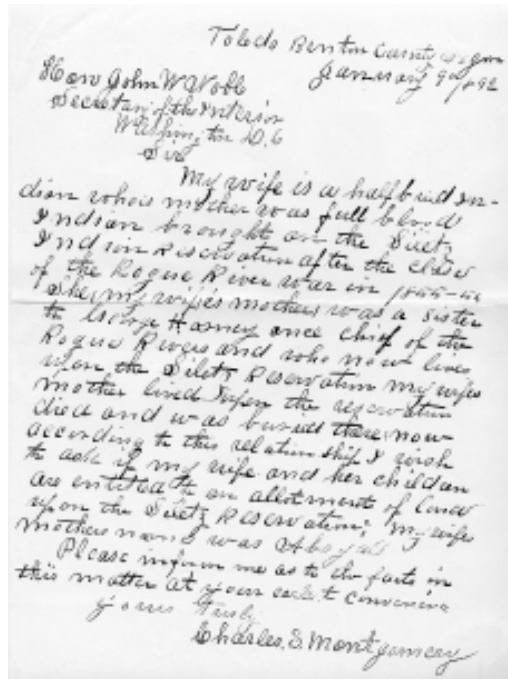 Toledo Benton County Oregon
January 9th 1892
Hon John W Noble
Secretary of the Interior
Washington D.C
Sir
My wife is a half breed In-
dian whois mother was full blood
Indian brought on the Siletz
Indian Reservation after the close
of the Rogue River war in 1855-56
She, my wifes mothers was a sister
to George Harney once chief of the
Rogue Rivers and who now lives
upon the Siletz Reservation my wifes
mother lived upon the reservation
died and was buried there, now
according to this relationship I wish
to ask if my wife and her children
are entitled to an allotment of land
upon the Siletz Reservation; my wifes
mothers name was
Please inform me as to the facts in
this matter at your convenience
yours Truly
Charles. S. Montgomery